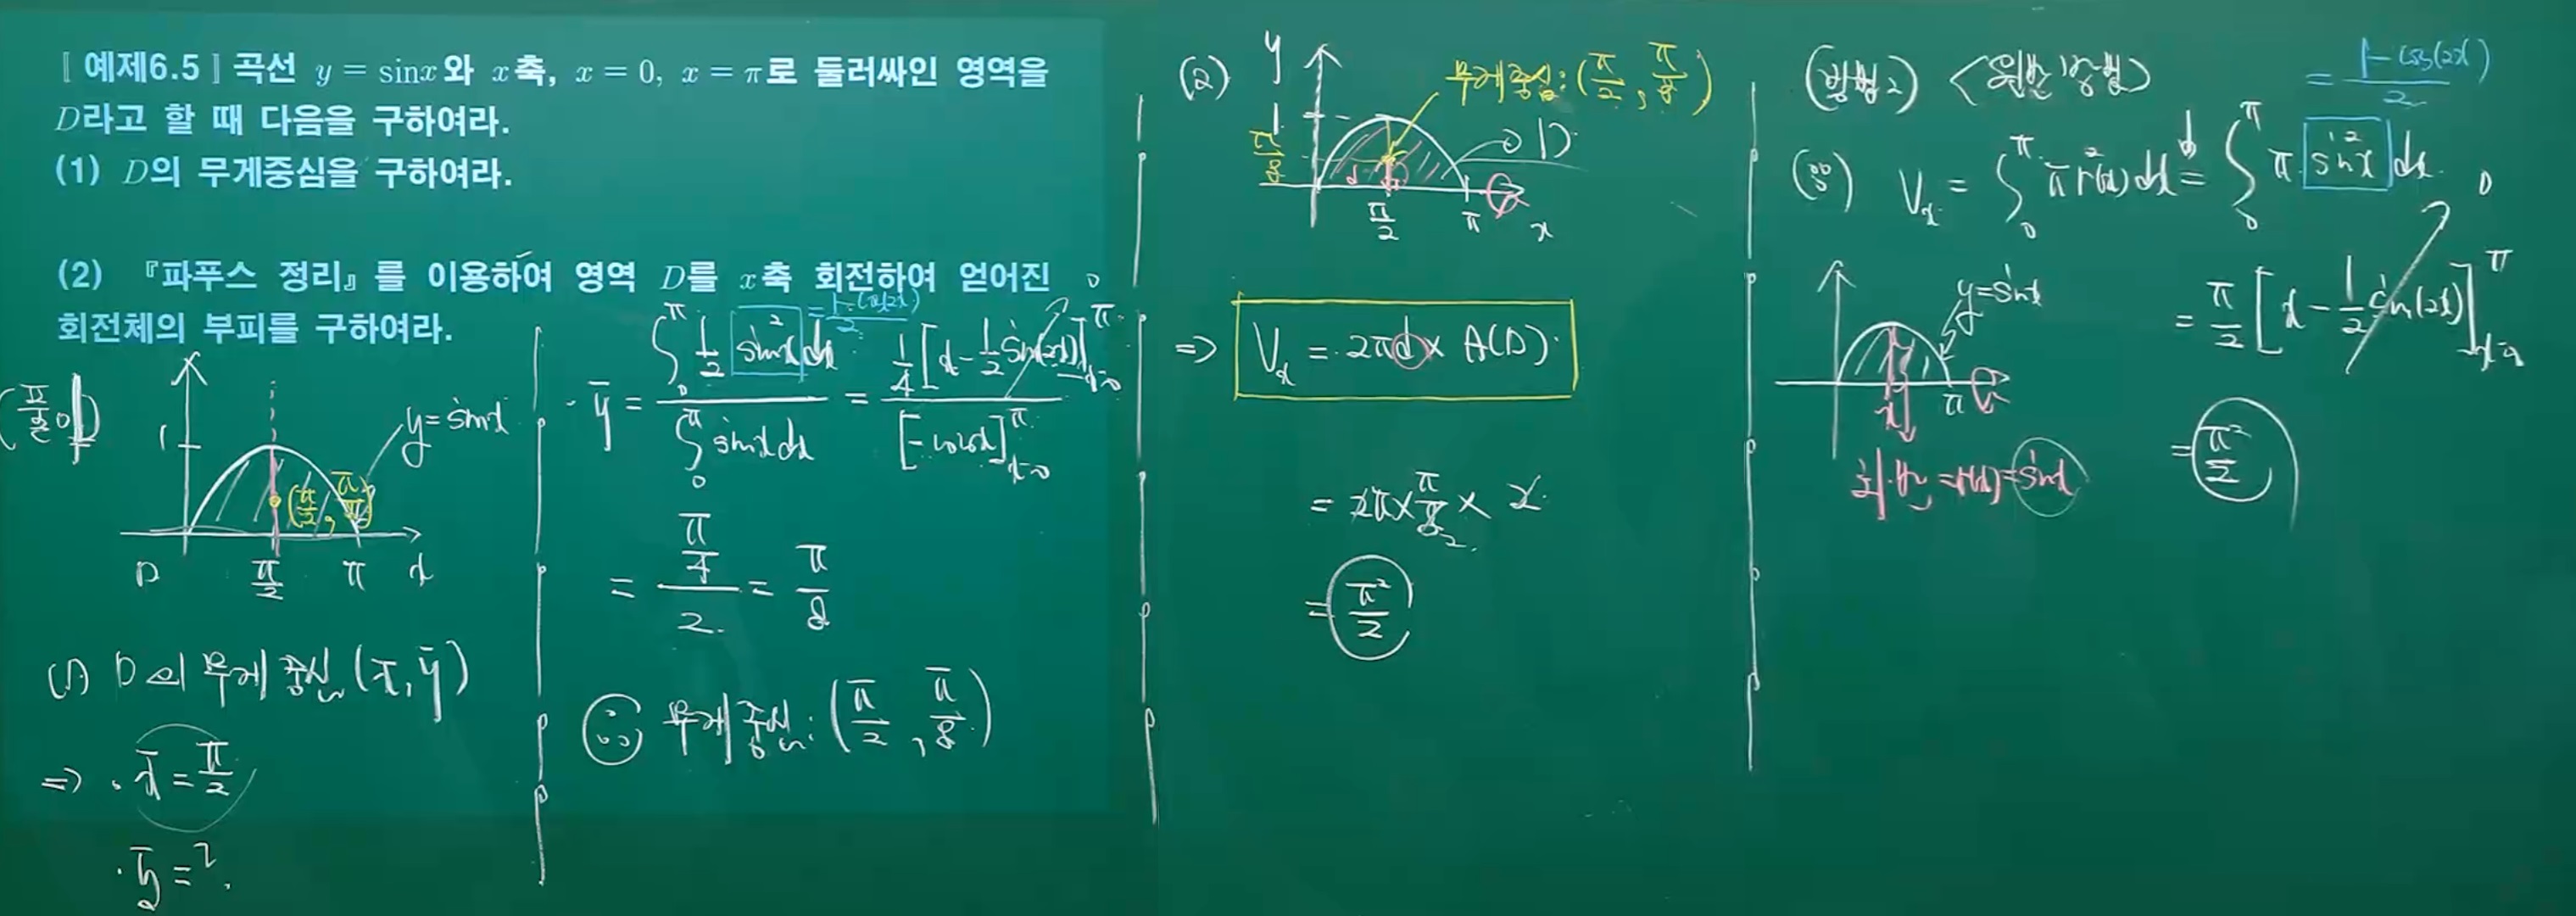 〚예제6.5〛 곡선 y = sinx와 x축, x = 0, x = π로 둘러싸인 영역을
D라고 할 때 다음을 구하여라.
(1) D의 무게중심을 구하여라.
(2) 『파푸스 정리』를 이용하여 영역 D를 x축 회전하여 얻어진
회전체의 부피를 구하여라.
1
y=sinx
(π/2, π/8)
D
π/2
π
x
(1) D의 무게중심 (x̄, ȳ)
⇒ · x̄ = π/2
· ȳ = ?
= (1-cos(2x))/2
0
· ȳ = ∫₀^π 1/2 sin²x dx / ∫₀^π sinx dx = 1/4 [x - 1/2 sin(2x)]_{x=0}^π / [-cosx]_{x=0}^π
= (π/4)/2 = π/8
∴ 무게중심: (π/2, π/8)
(2)
y
무게중심: (π/2, π/8)
1
D
π/8
d
π/2
π
x
⇒ Vₓ = 2πd × A(D)
= 2π × π/8 × 2
2
= π²/2
(방법2) <원판방법>
= (1-cos(2x))/2
(∵) Vₓ = ∫₀^π π r²(x) dx = ∫₀^π π sin²x dx
0
y=sinx
= π/2 [x - 1/2 sin(2x)]_{x=0}^π
x
π
= r(x) = sinx
= π²/2